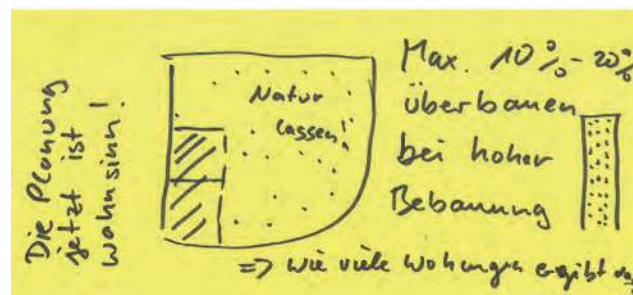 Die Planung
jetzt ist
wahnsinn!
Natur
lassen!
Max. 10%-20%
überbauen
bei hoher
Bebauung
=> wie viele Wohungen ergibt